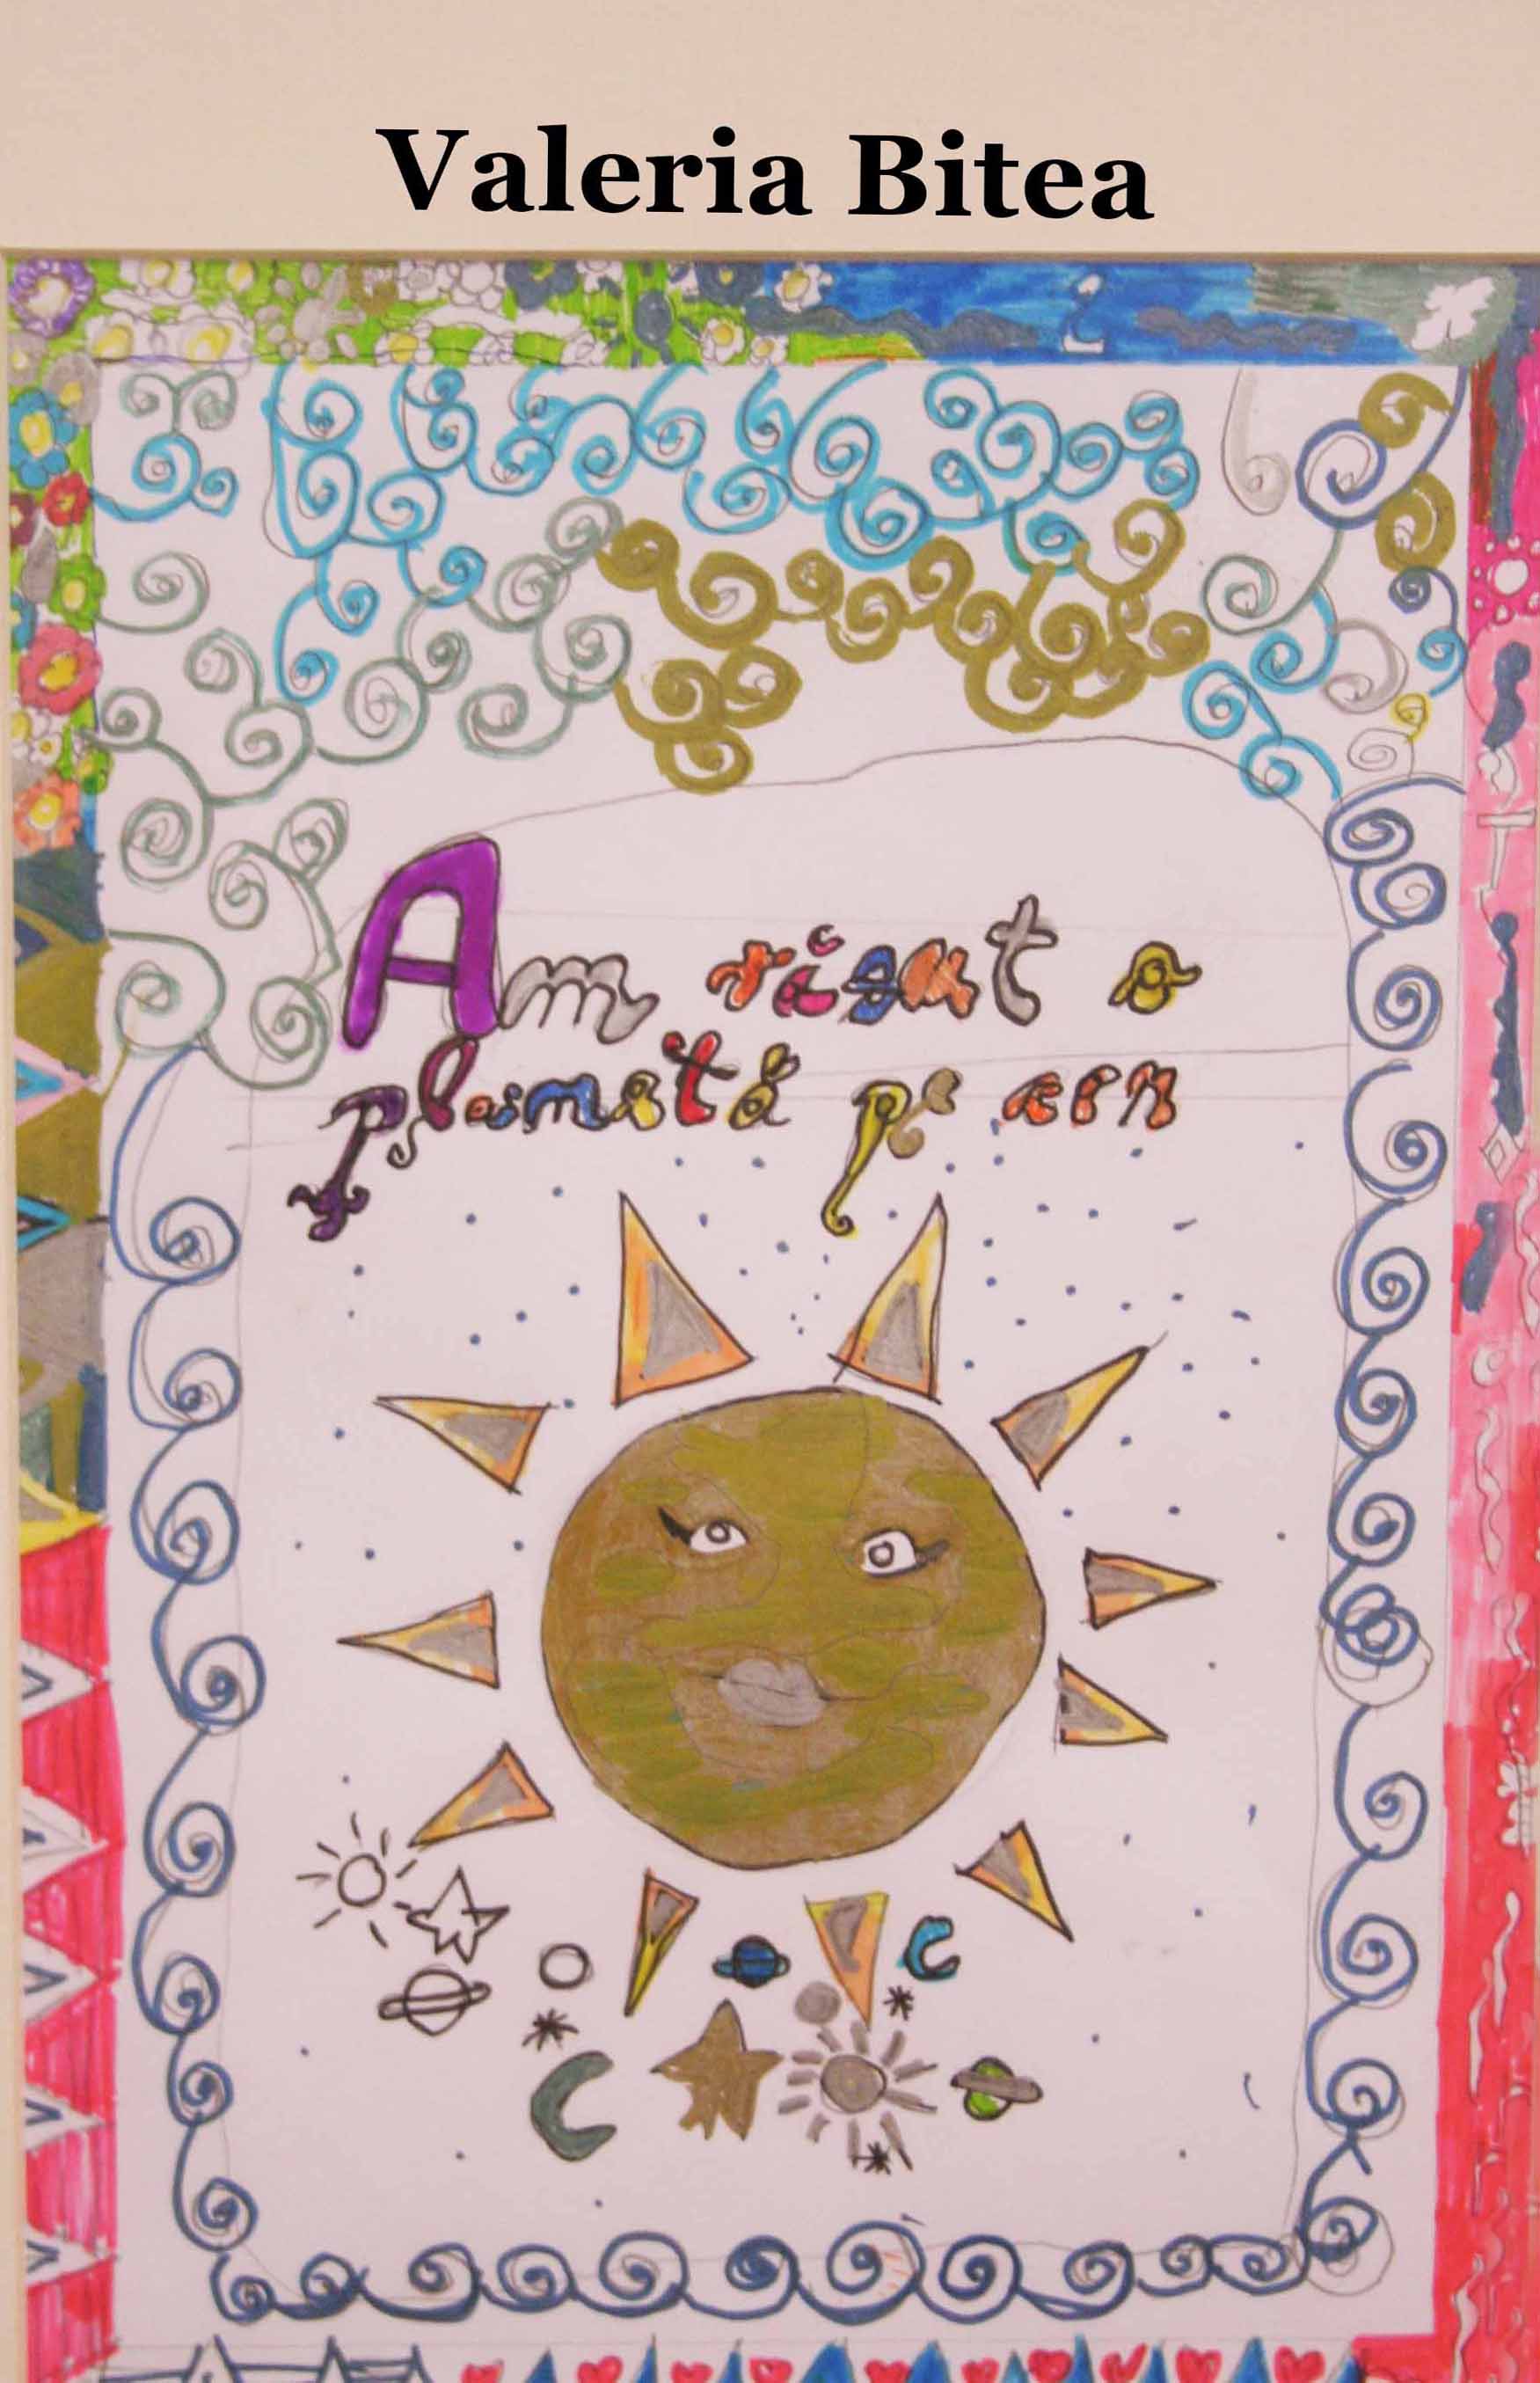 Valeria Bitea
Am visat o
planetă pe cer